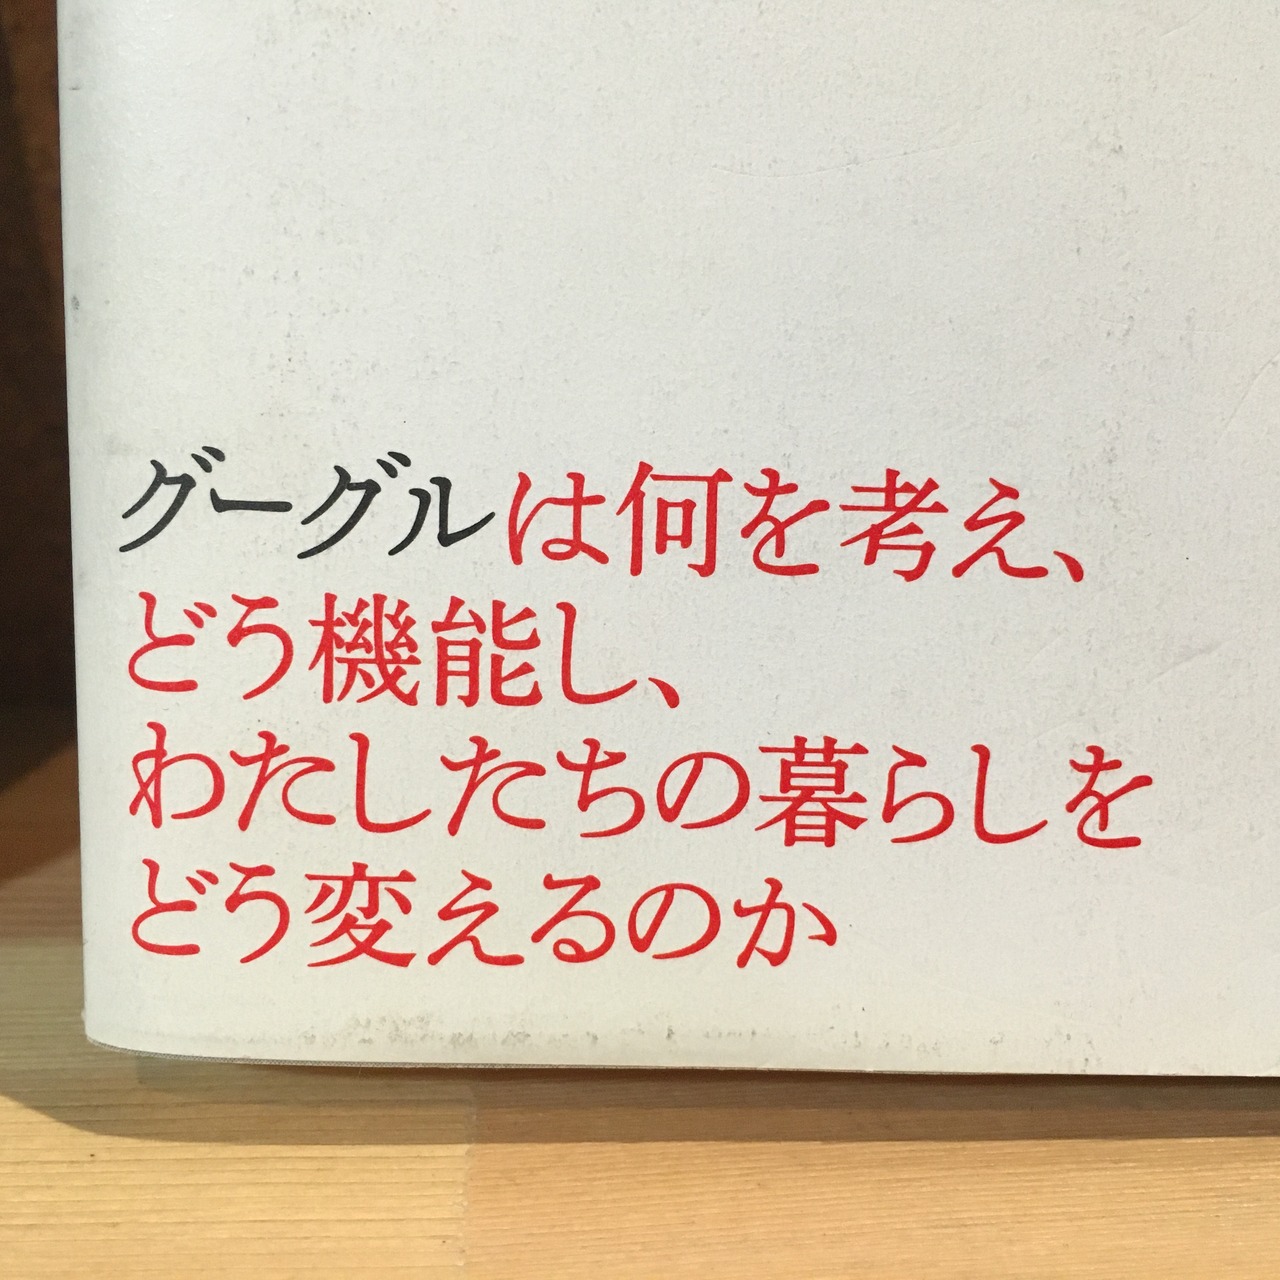 グーグルは何を考え、
どう機能し、
わたしたちの暮らしを
どう変えるのか